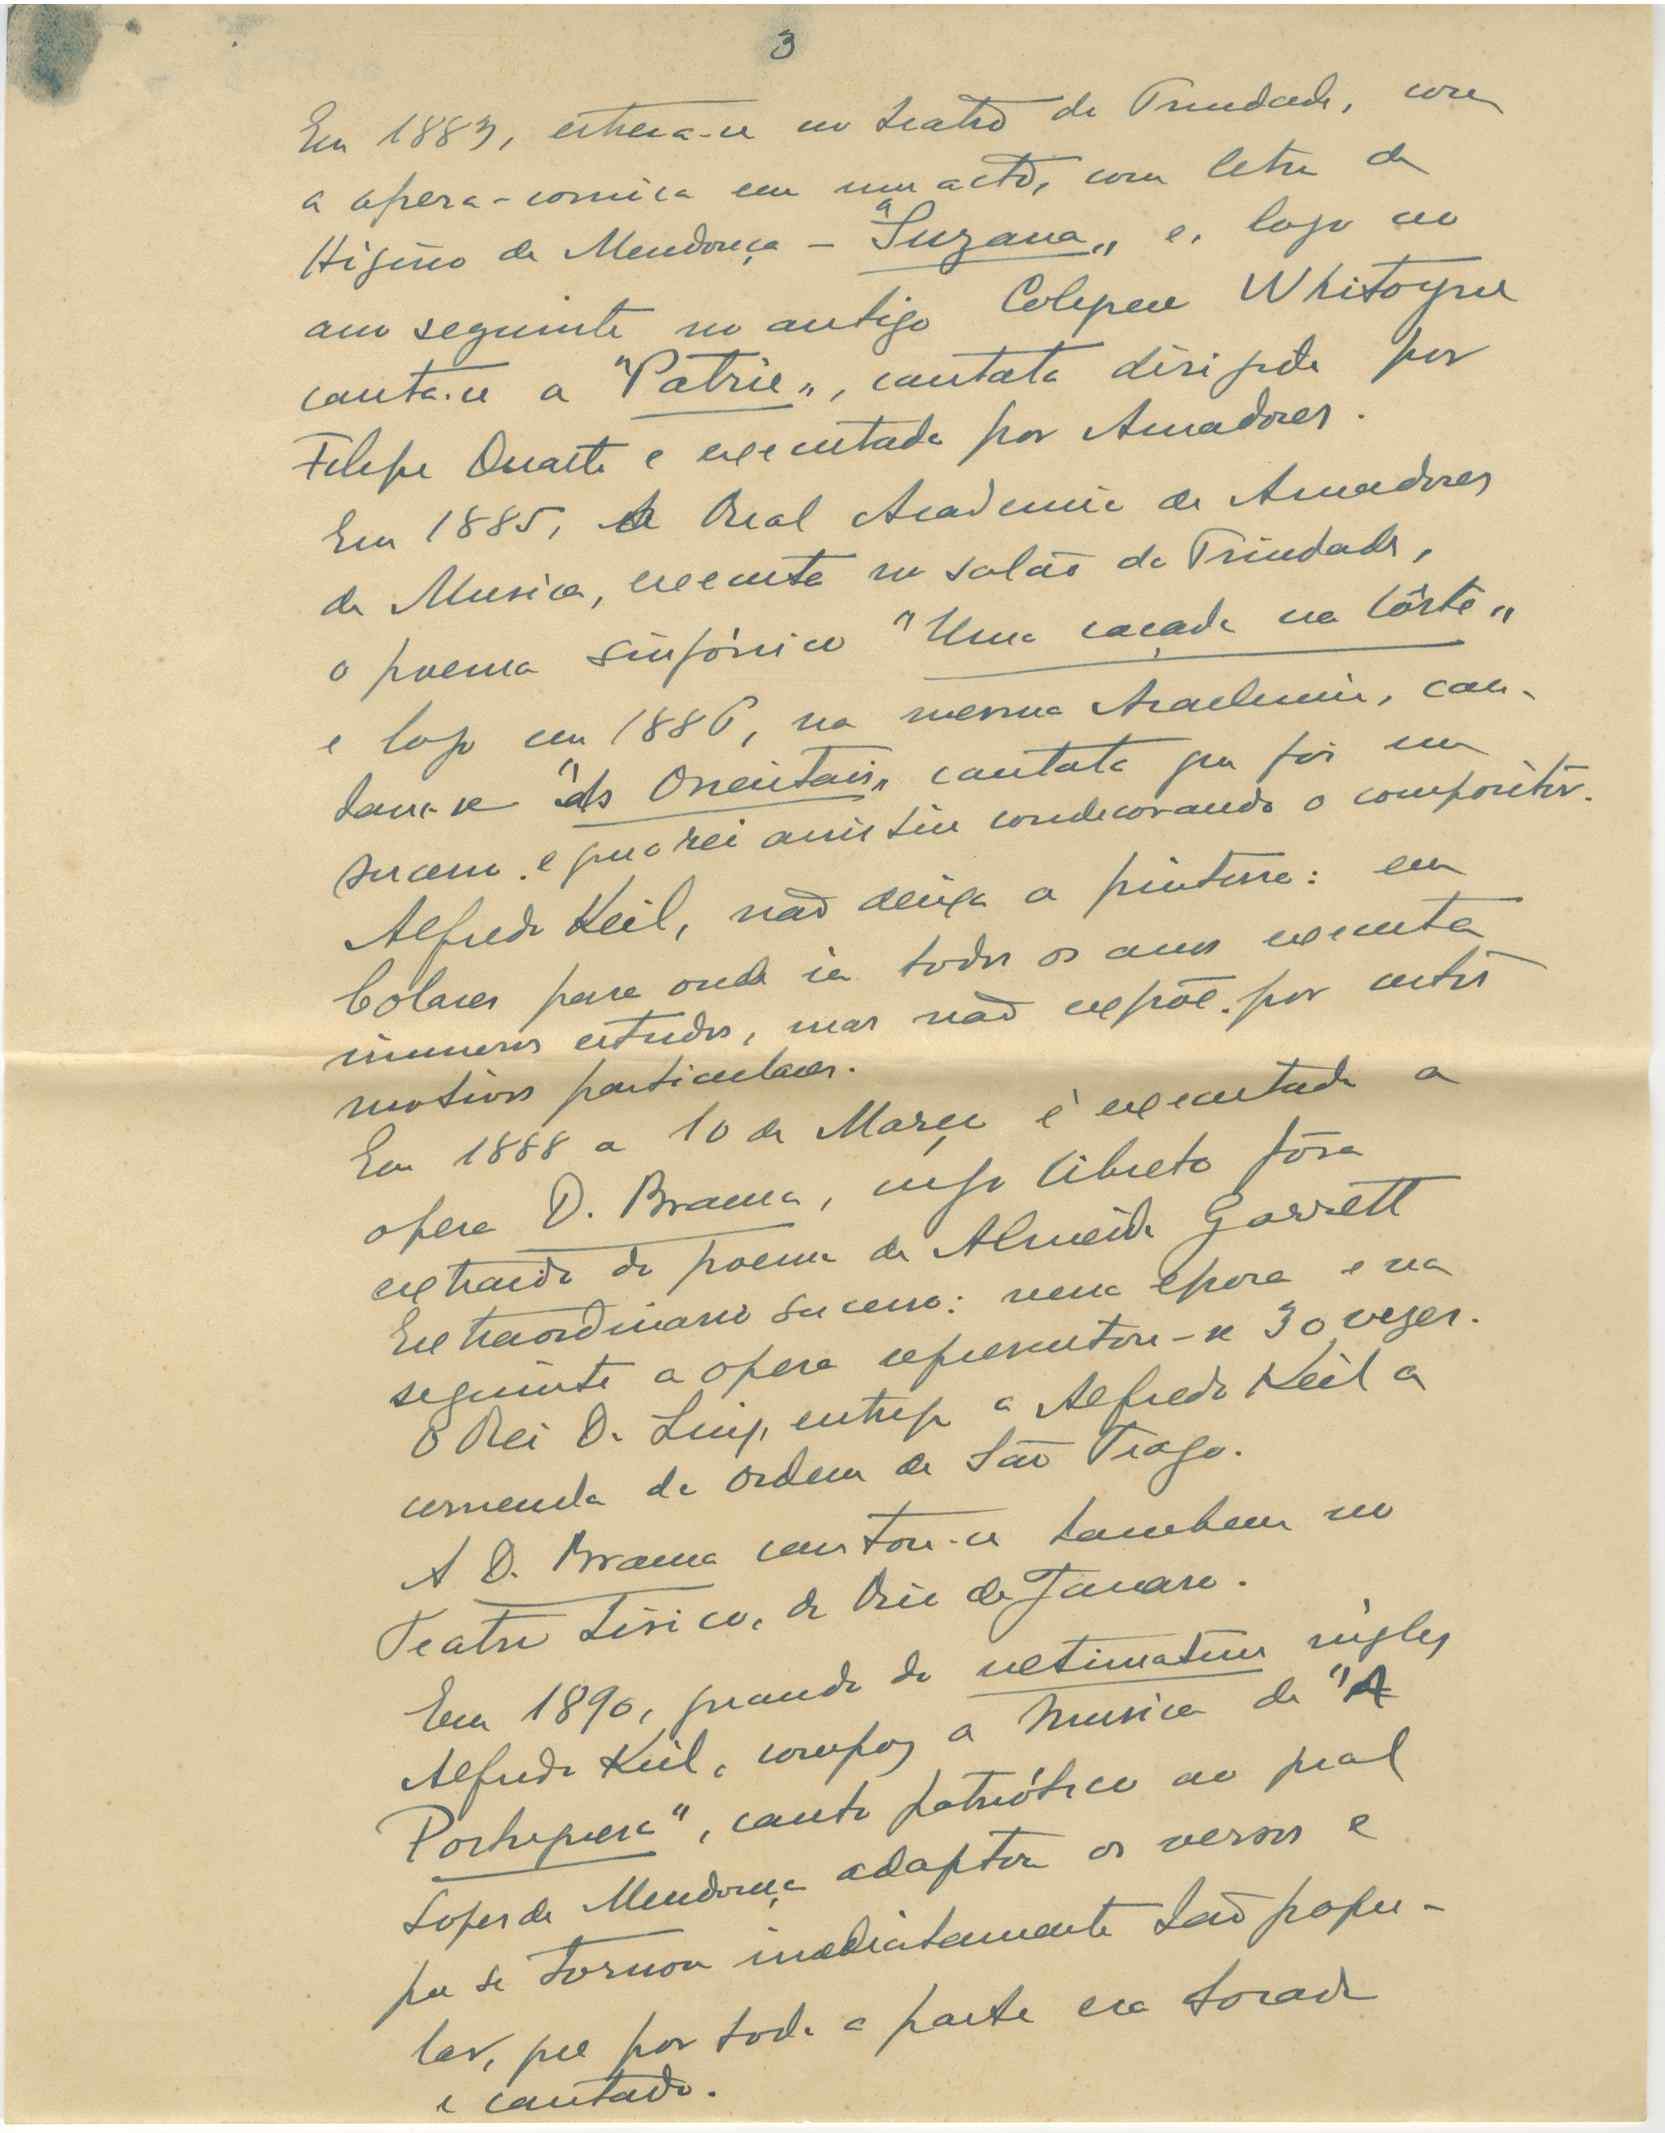 3
Em 1883, estreia-se no teatro da Trindade, com
a opera-comica em um acto, com letra de
Higino de Mendonça - "Suzana„ e, logo no
ano seguinte no antigo Colyseu Whitoyne
canta-se a "Patrie„, cantata dirigida por
Filipe Duarte e executada por Amadores.
Em 1885, a Real Academia de Amadores
de Musica, executa no salão da Trindade,
o poema sinfónico "Uma caçada na Côrte„
e logo em 1886, na mesma Academia, can-
tam-se "As Orientais„ cantata que foi um
sucesso. e que o rei assistiu condecorando o compositor.
Alfredo Keil, não deixa a pintura: em
Colares para onde ia todos os anos executa
inumeros estudos, mas não expõe. por certos
motivos particulares.
Em 1888 a 10 de Março é executada a
opera D. Branca, cujo libreto fôra
extraido do poema de Almeida Garrett
Extraordinario sucesso: nessa epoca e na
seguinte a opera representou-se 30 vezes.
O Rei D. Luiz, entrega a Alfredo Keil a
comenda da ordem de São Tiago.
A D. Branca cantou-se tambem no
Teatro Lirico, do Rio de Janeiro.
Em 1890, quando do ultimatum inglez
Alfredo Keil, compoz a musica da "A
Portugueza", canto patriótico ao qual
Lopes de Mendonça adaptou os versos e
que se tornou imediatamente tão popu-
lar, que por toda a parte era tocado
e cantado.